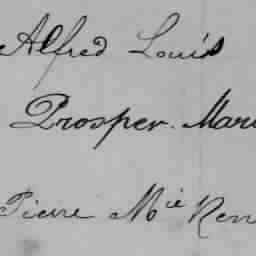 Alfred Louis
Prosper. Mari
Pierre Mie Ren